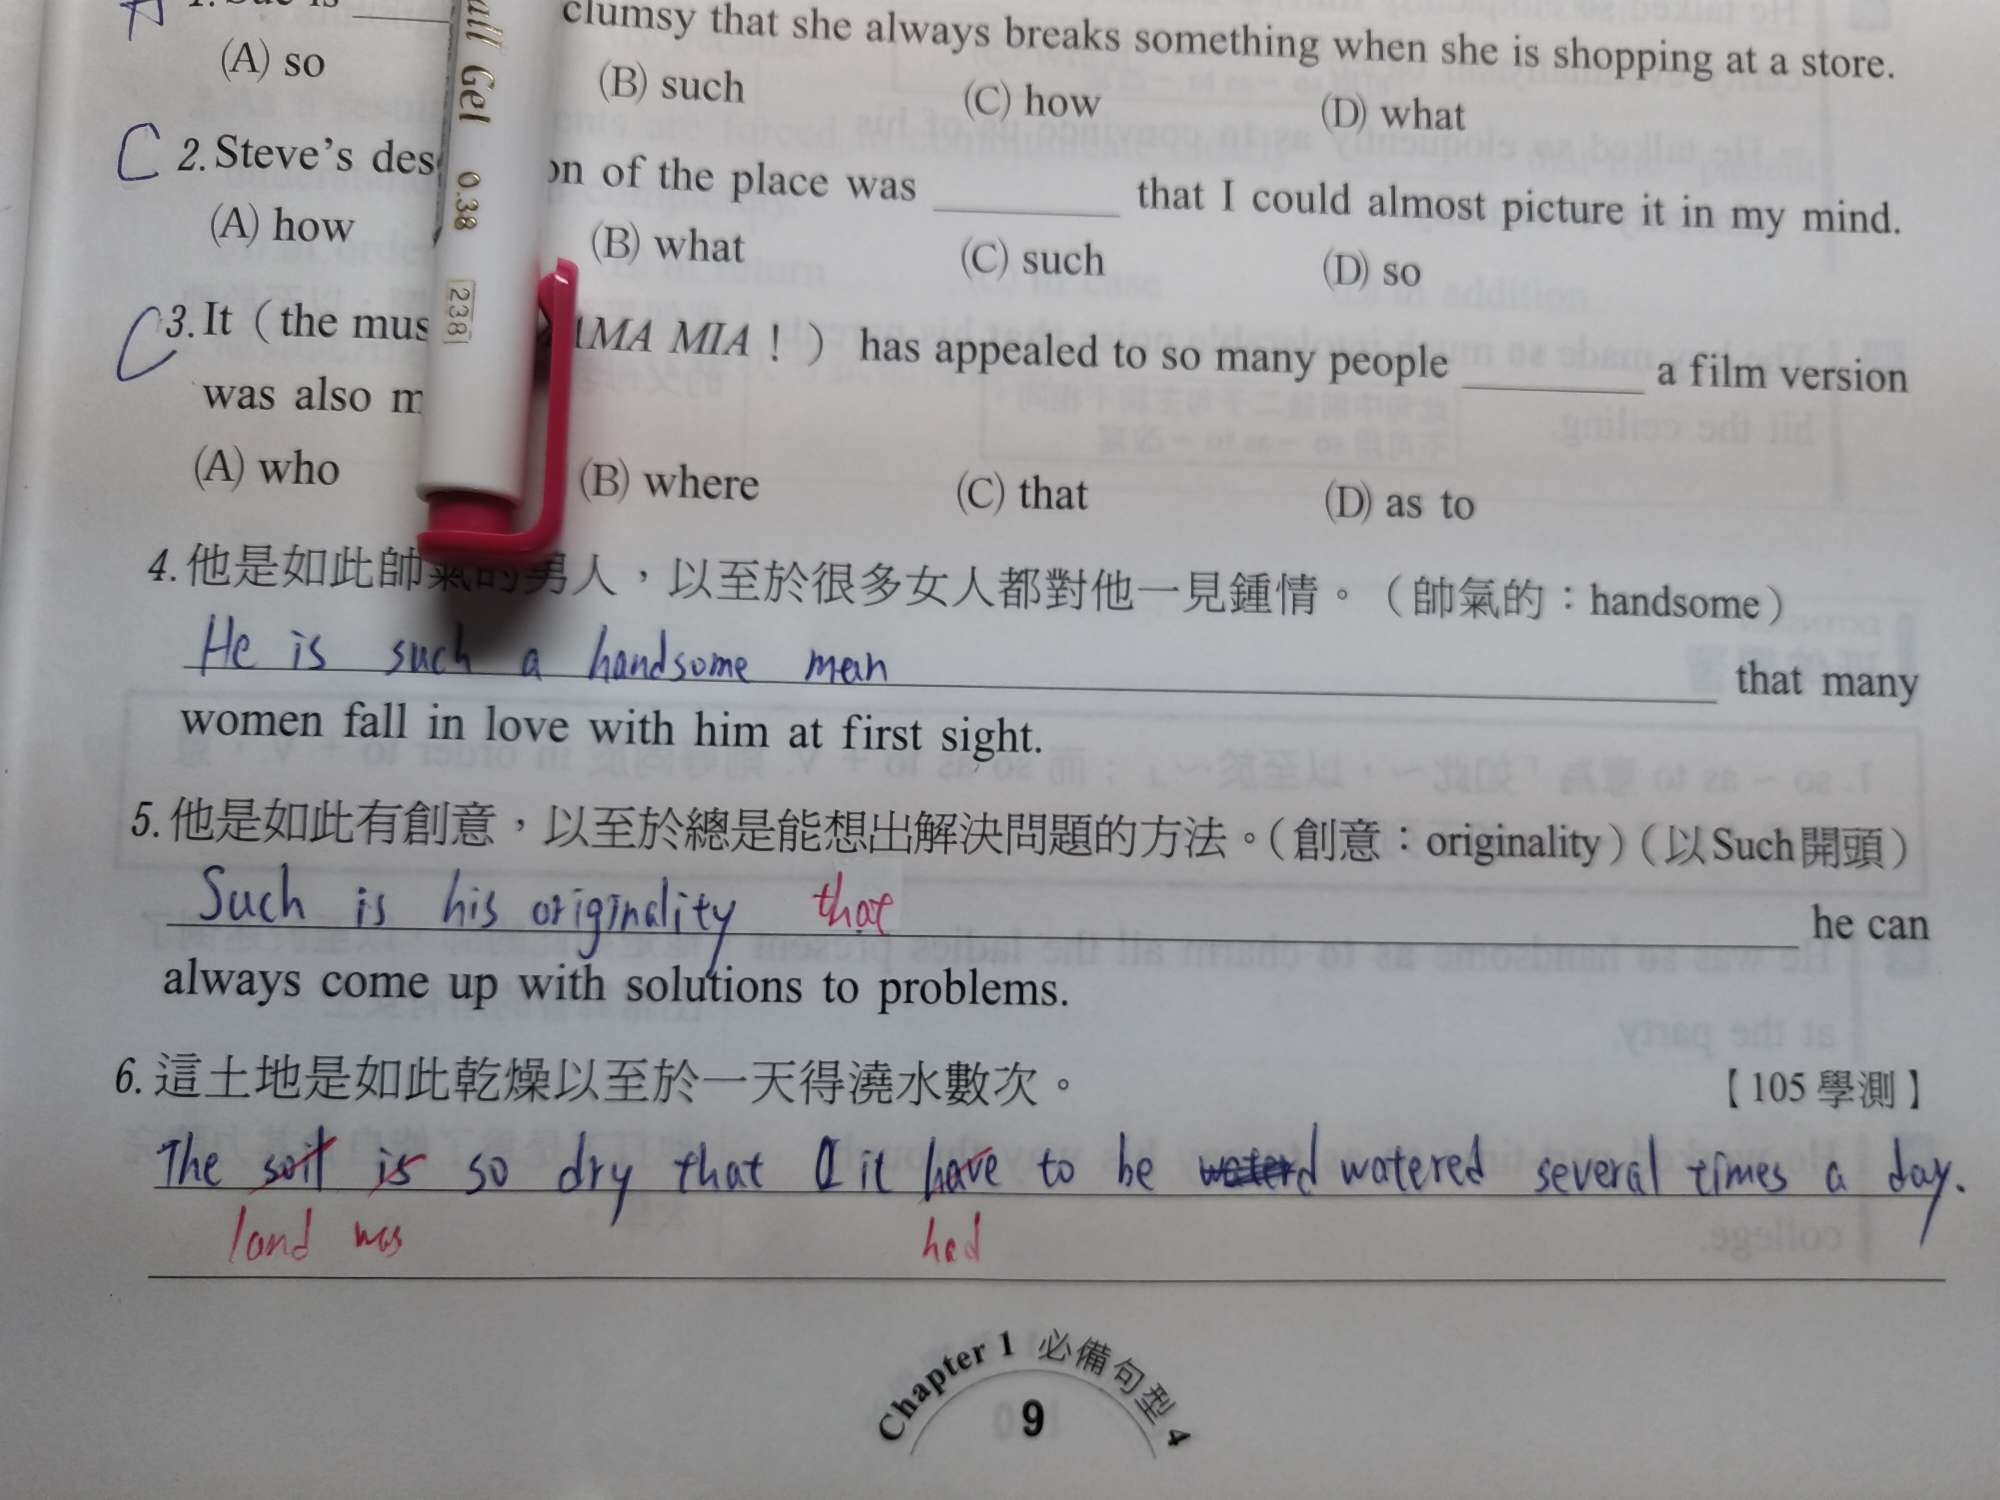 clumsy that she always breaks something when she is shopping at a store.
(A) so (B) such (C) how (D) what
C 2. Steve's des on of the place was ______ that I could almost picture it in my mind.
(A) how (B) what (C) such (D) so
C 3. It（the mus AMA MIA！） has appealed to so many people ______ a film version
was also m
(A) who (B) where (C) that (D) as to
Gel 0.38 238
4. 他是如此帥氣的男人，以至於很多女人都對他一見鍾情。（帥氣的：handsome）
He is such a handsome man that many
women fall in love with him at first sight.
5. 他是如此有創意，以至於總是能想出解決問題的方法。（創意：originality）（以Such開頭）
Such is his originality that he can
always come up with solutions to problems.
6. 這土地是如此乾燥以至於一天得澆水數次。 【105 學測】
The soil is so dry that it have to be watered several times a day.
land was had
Chapter 1 必備句型 4
9